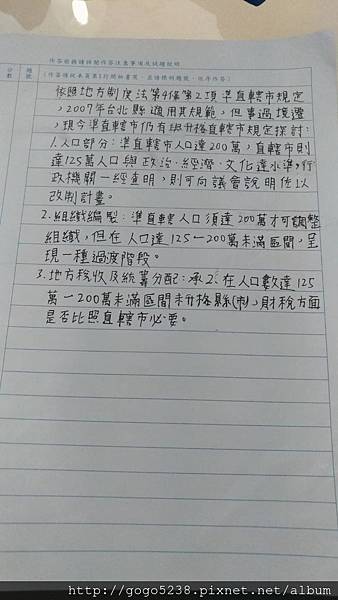 作答前務請詳閱作答注意事項及試題說明
分數
題號
(作答請從本頁第1行開始書寫，並請標明題號，依序作答)
依照地方制度法第4條第2項準直轄市規定
，2007年台北縣適用其規範，但事過境遷
，現今準直轄市仍有組升格直轄市規定探討：
1.人口部分：準直轄市人口達200萬，直轄市則
達125萬人口與政治、經濟、文化達水準，行
政機關一經查明，則可向議會說明依以
改制計畫。
2.組織編型：準直轄人口須達200萬才可調整
組織，但在人口達125－200萬未滿區間，呈
現一種過渡階段。
3.地方稅收及統籌分配：承2、在人口數達125
萬－200萬未滿區間未升格縣(市)，財稅方面
是否比照直轄市必要。
http://gogo5238.pixnet.net/album